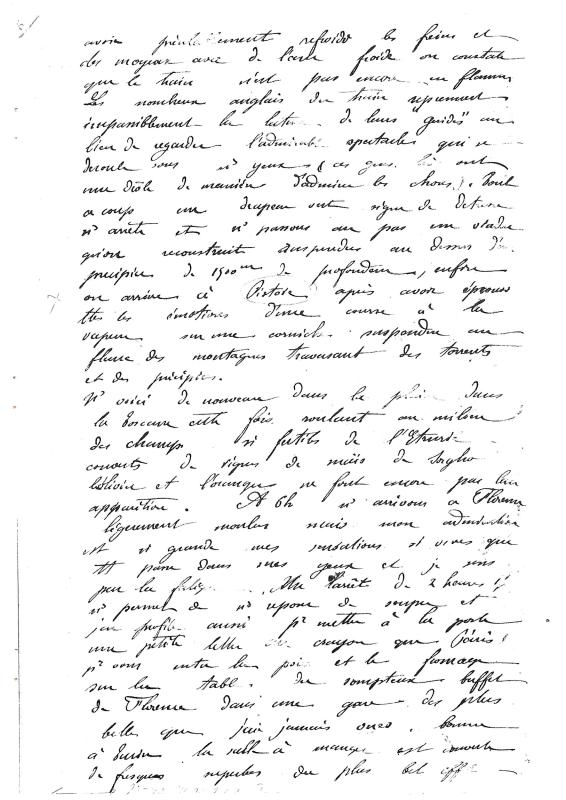 avoir préalablement refroidi les freins et
des moyeux avec de l'eau froide on constate
que le train n'est pas encore en flammes
Les nombreux anglais du train reprennent
imperturbablement la lecture de leurs "guides" au
lieu de regarder l'admirable spectacle qui se
déroule sous ns yeux (ces gens là ont
une drôle de manière d'admirer les choses). Tout
à coup un drapeau vert signe de
ns arrête et ns passons au pas un viaduc
qu'on reconstruit suspendus au dessus d'un
précipice de 1500m de profondeur, enfin
on arrive à Pistoie après avoir éprouvé
ttes les émotions d'une course à la
vapeur sur une corniche suspendue au
flanc des montagnes traversant des torrents
et des précipices.
Ns voici de nouveau dans la plaine dans
la Toscane cette fois roulant au milieu
des champs si fertiles de l'Etrurie
couverts de vignes de maïs de sorgho
l'olivier et l'oranger ne font encore pas leur
apparition. A 6h ns arrivons à Florence
légèrement moulus mais mon admiration
est si grande mes sensations si vives que
tt passe dans mes yeux et je ne sens
pas la fatigue. Un arrêt de 2 heures !!
ns permet de ns reposer de souper et
j'en profite aussi pr mettre à la poste
une petite lettre au crayon que j'écris
pr vous entre la poire et le fromage
sur la table du somptueux buffet
de Florence dans une gare des plus
belles que j'aie jamais vues. Comme
à Turin la salle à manger est couverte
de fresques superbes du plus bel effet